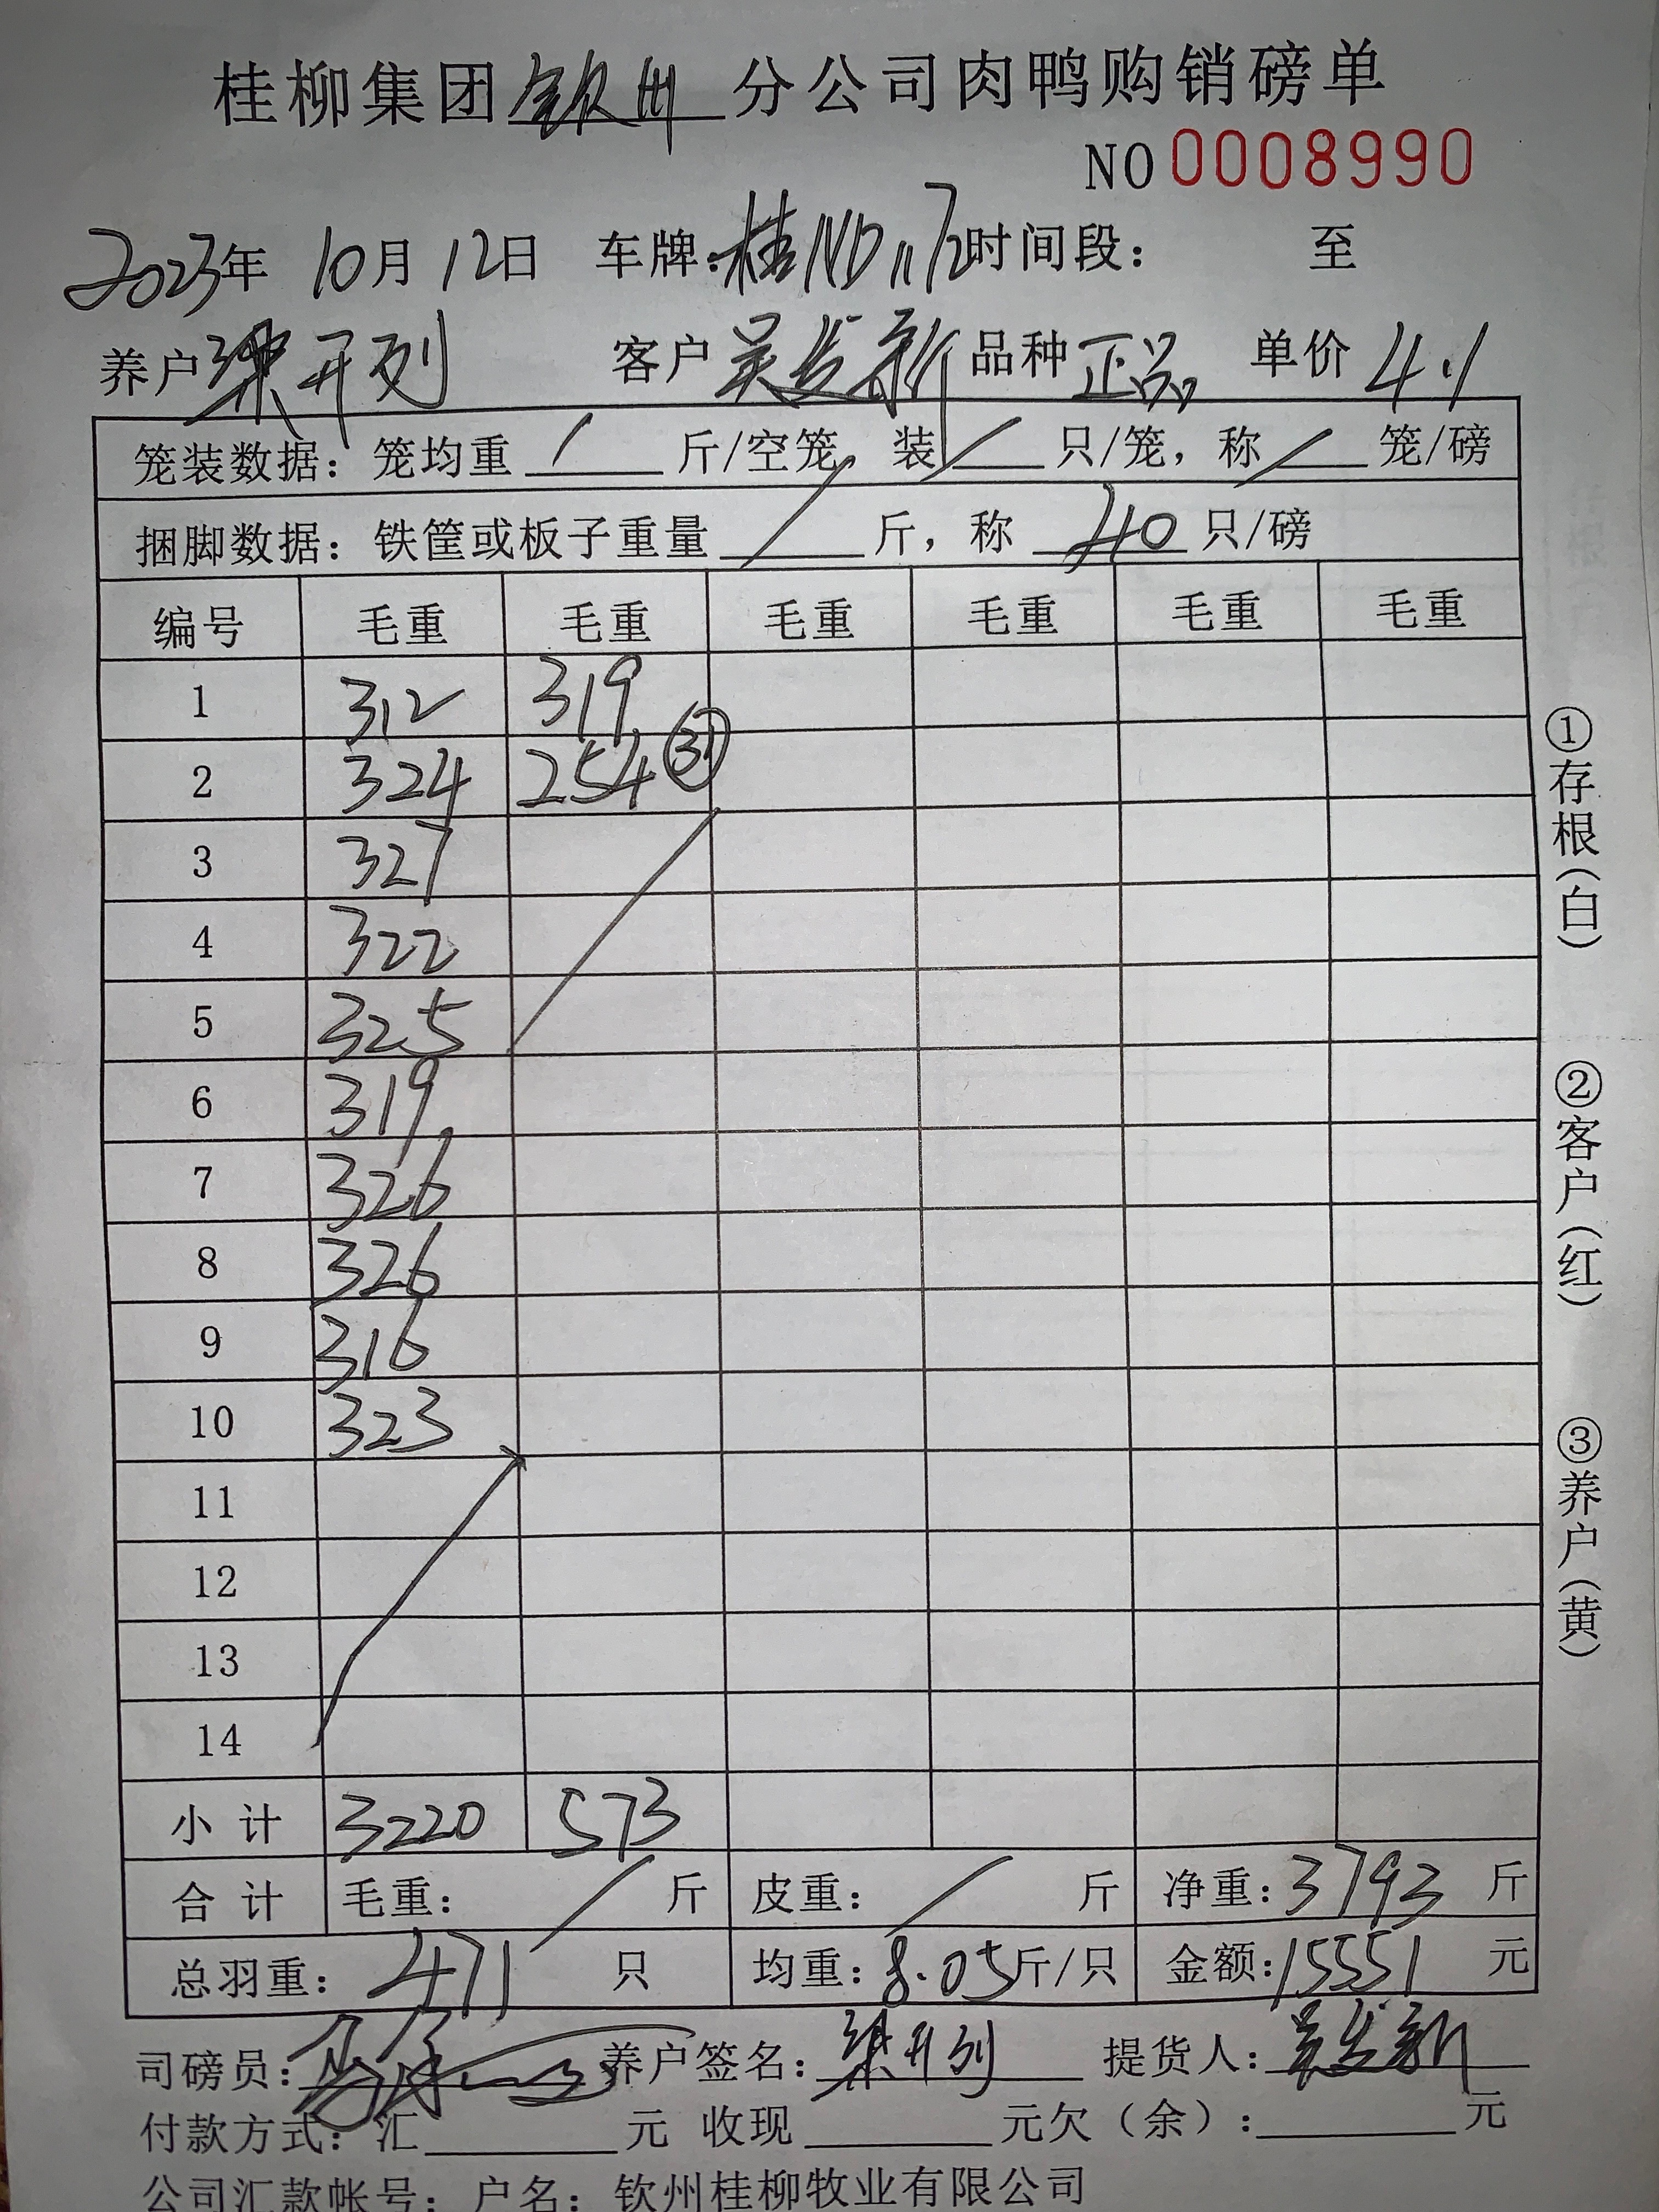 桂柳集团钦州分公司肉鸭购销磅单
NO 0008990
2023年 10月 12日 车牌:桂ND1172时间段: 至
养户梁开列 客户吴发新 品种正品 单价4.1
笼装数据:笼均重 / 斤/空笼,装 / 只/笼,称 / 笼/磅
捆脚数据:铁筐或板子重量 / 斤,称 40 只/磅
编号 毛重 毛重 毛重 毛重 毛重 毛重
1 312 319
2 324 254 ㉛
3 327
4 322
5 325
6 319
7 326
8 326
9 316
10 323
11
12
13
14
小 计 3220 573
合 计 毛重: / 斤 皮重: / 斤 净重:3793 斤
总羽重: 471 只 均重:8.05斤/只 金额:15551 元
司磅员: 养户签名:梁开列 提货人:吴发新
付款方式:汇 元 收现 元欠(余): 元
公司汇款帐号:户名:钦州桂柳牧业有限公司
①存根(白)
②客户(红)
③养户(黄)